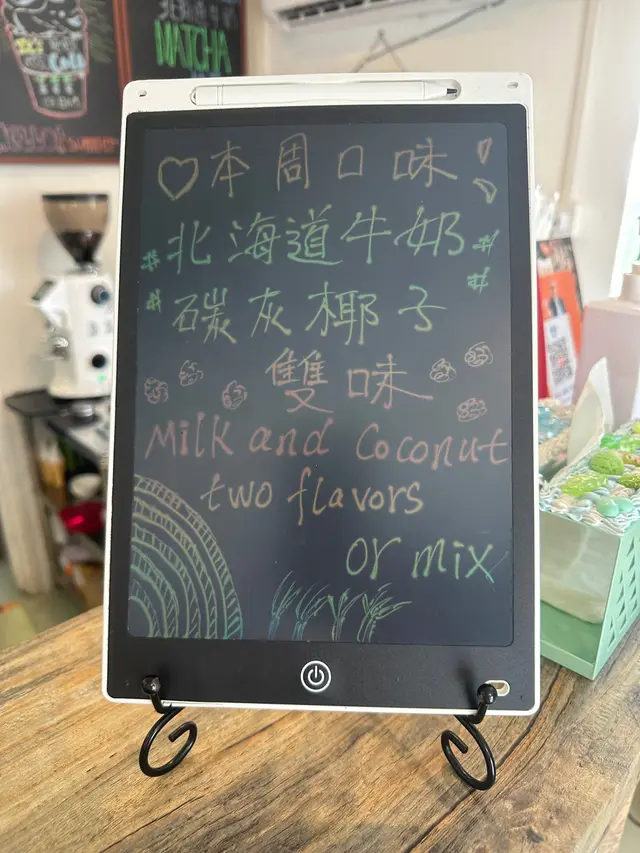 本周口味
北海道牛奶
碳灰椰子
雙味
Milk and Coconut
two flavors
or mix